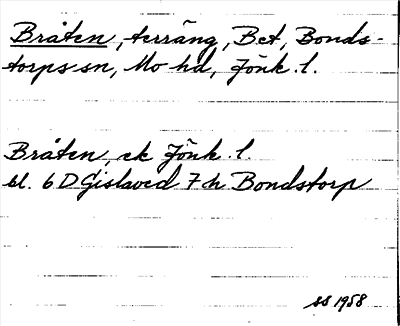 Bråten, terräng, Bet, Bonds-
torps sn, Mo hd, Jönk. l.
Bråten, ek Jönk. l.
bl. 6 D Gislaved 7 h Bondstorp
SS 1958